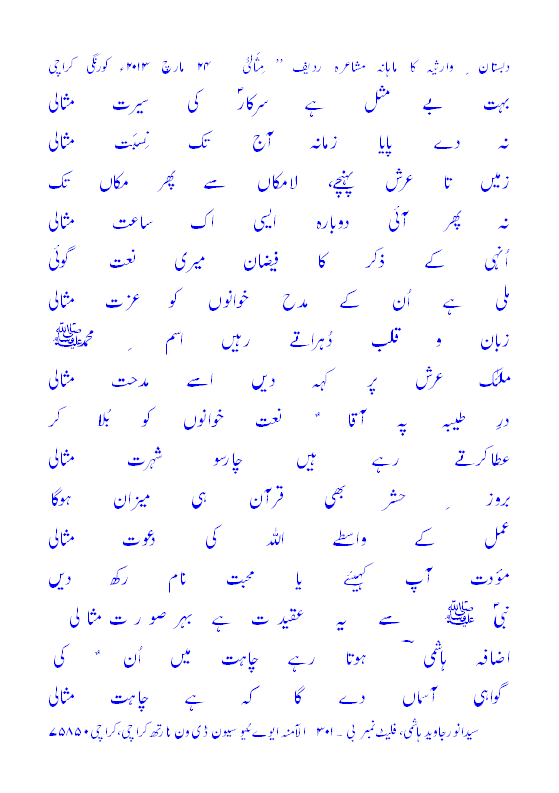 دبستان ِ وارثیہ کا ماہانہ مشاعرہ ردیف ’’ مِثَالیُ ۲۴ مارچ ۲۰۱۳ء کورنگی کراچی
بہت بے مثل ہے سرکارؐ کی سیرت مثالی
نہ دے پایا زمانہ آج تک نِسبَت مثالی
زمیں تا عرش پہنچے، لامکاں سے پھر مکاں تک
نہ پھر آئی دوبارہ ایسی اک ساعت مثالی
اُنہی کے ذکر کا فیضان میری نعت گوئی
ملی ہے اُن کے مدح خوانوں کو عزت مثالی
زبان و قلب دُہراتے رہیں اسم ِ محمدﷺ
ملئک عرش پر کہہ دیں اسے مدحت مثالی
درِ طیبہ پہ آقا ؐ نعت خوانوں کو بُلا کر
عطاکرتے رہے ہیں چارسو شہرت مثالی
بروز ِ حشر بھی قرآن ہی میزان ہوگا
عمل کے واسطے اللہ کی دعوت مثالی
مؤدت آپ کہیئے یا محبت نام رکھ دیں
نبیؐ ﷺ سے یہ عقیدت ہے بہر صورت مثالی
اضافہ ہاشمی ؔ ہوتا رہے چاہت میں اُن ؐ کی
گواہی آسماں دے گا کہ ہے چاہت مثالی
سیدانورجاوید ہاشمی، فلیٹ نمبر بی ۔ ۳۰۱ الآمنہ ایوے نیو سیون ڈی ون نارتھ کراچی،کراچی ۷۵۸۵۰